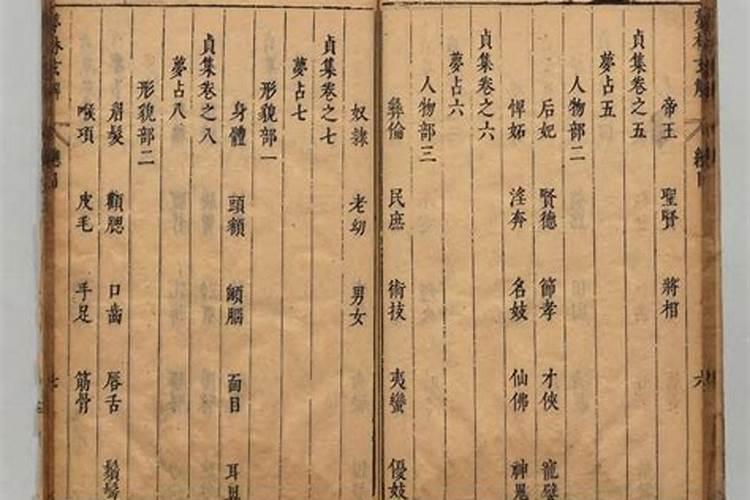 帝王 聖賢 將相
貞集卷之五
夢占五
人物部二
后妃 賢德 節孝 才俠
悍妬 淫奔 名妓 仙佛 神鬼
貞集卷之六
夢占六
人物部三
彝倫 民庶 術技 夷蠻 優妓
奴隸 老幼 男女
貞集卷之七
夢占七
形貌部一
身體 頭額 顱腦 面目 耳鼻
貞集卷之八
夢占八
形貌部二
眉髮 顴腮 口齒 唇舌
喉項 皮毛 手足 筋骨
七